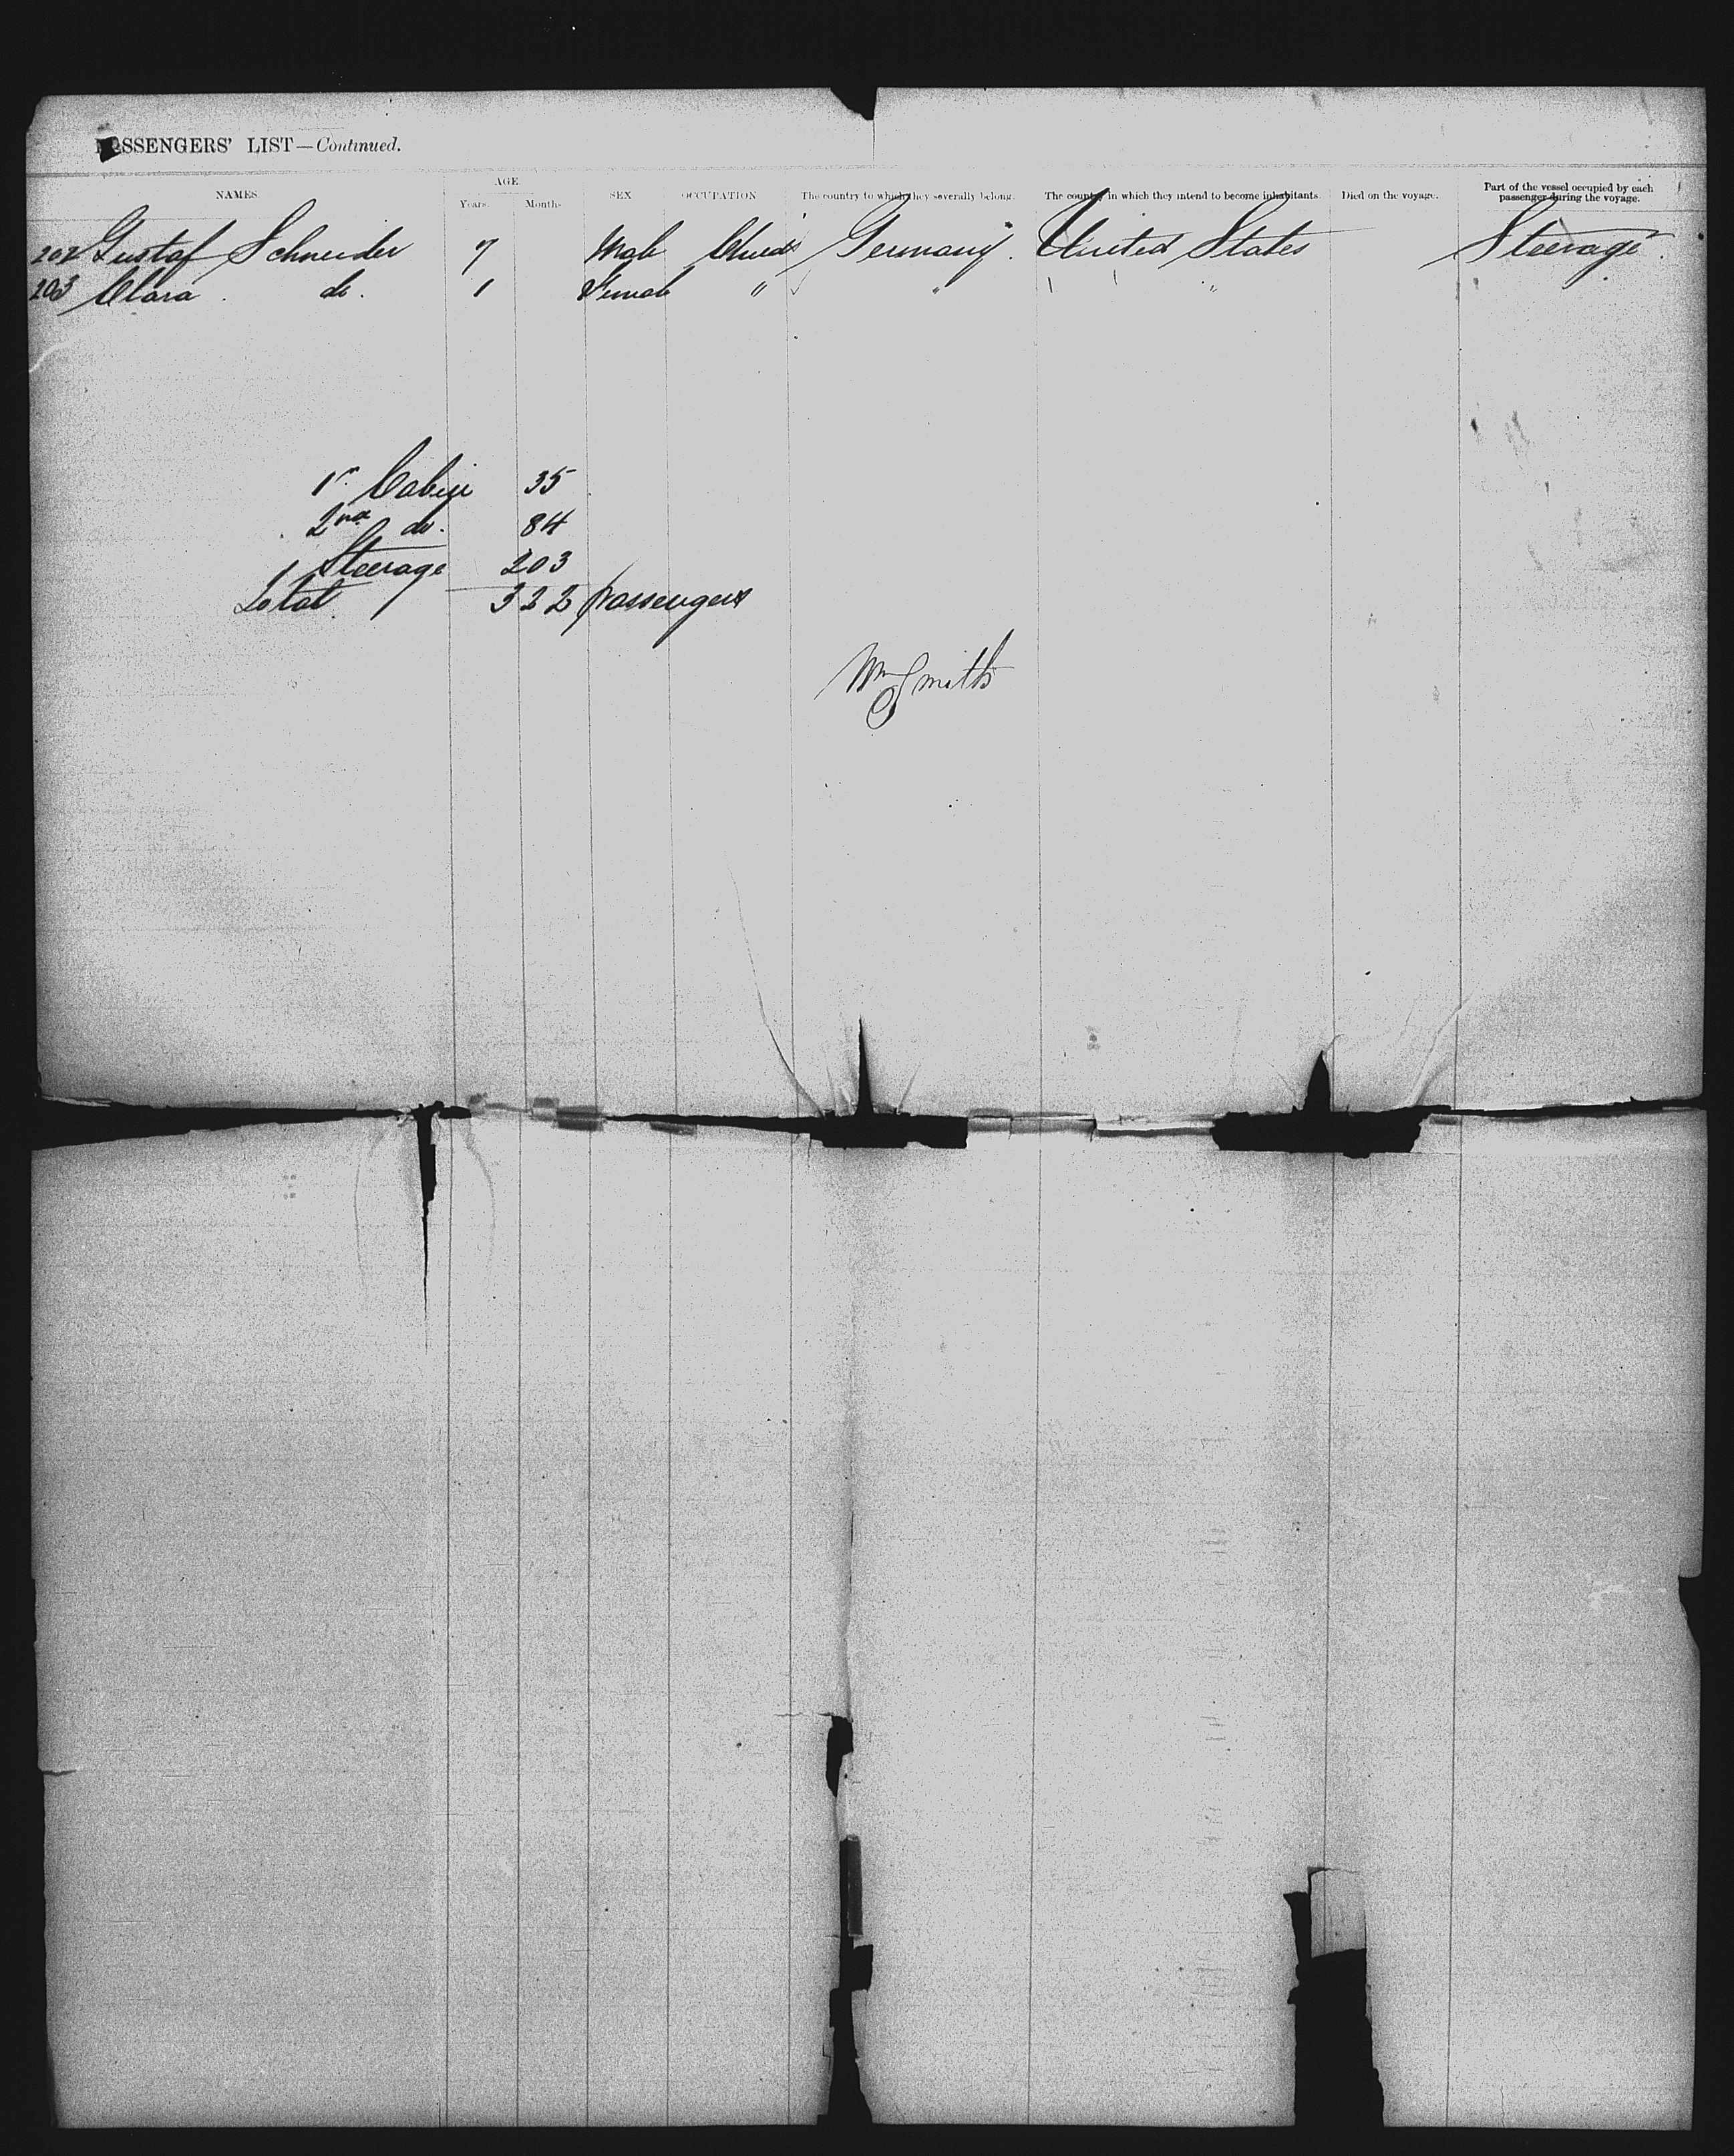 PASSENGERS' LIST—Continued.
NAMES AGE SEX OCCUPATION The country to which they severally belong. The country in which they intend to become inhabitants. Died on the voyage. Part of the vessel occupied by each passenger during the voyage.
Years. Months.
202 Gustaf Schneider 7 Male Child Germany. United States Steerage.
203 Clara . do. 1 Female " " "
1st Cabin 35
2nd do. 84
Steerage 203
Total 322 passengers
Wm Smith